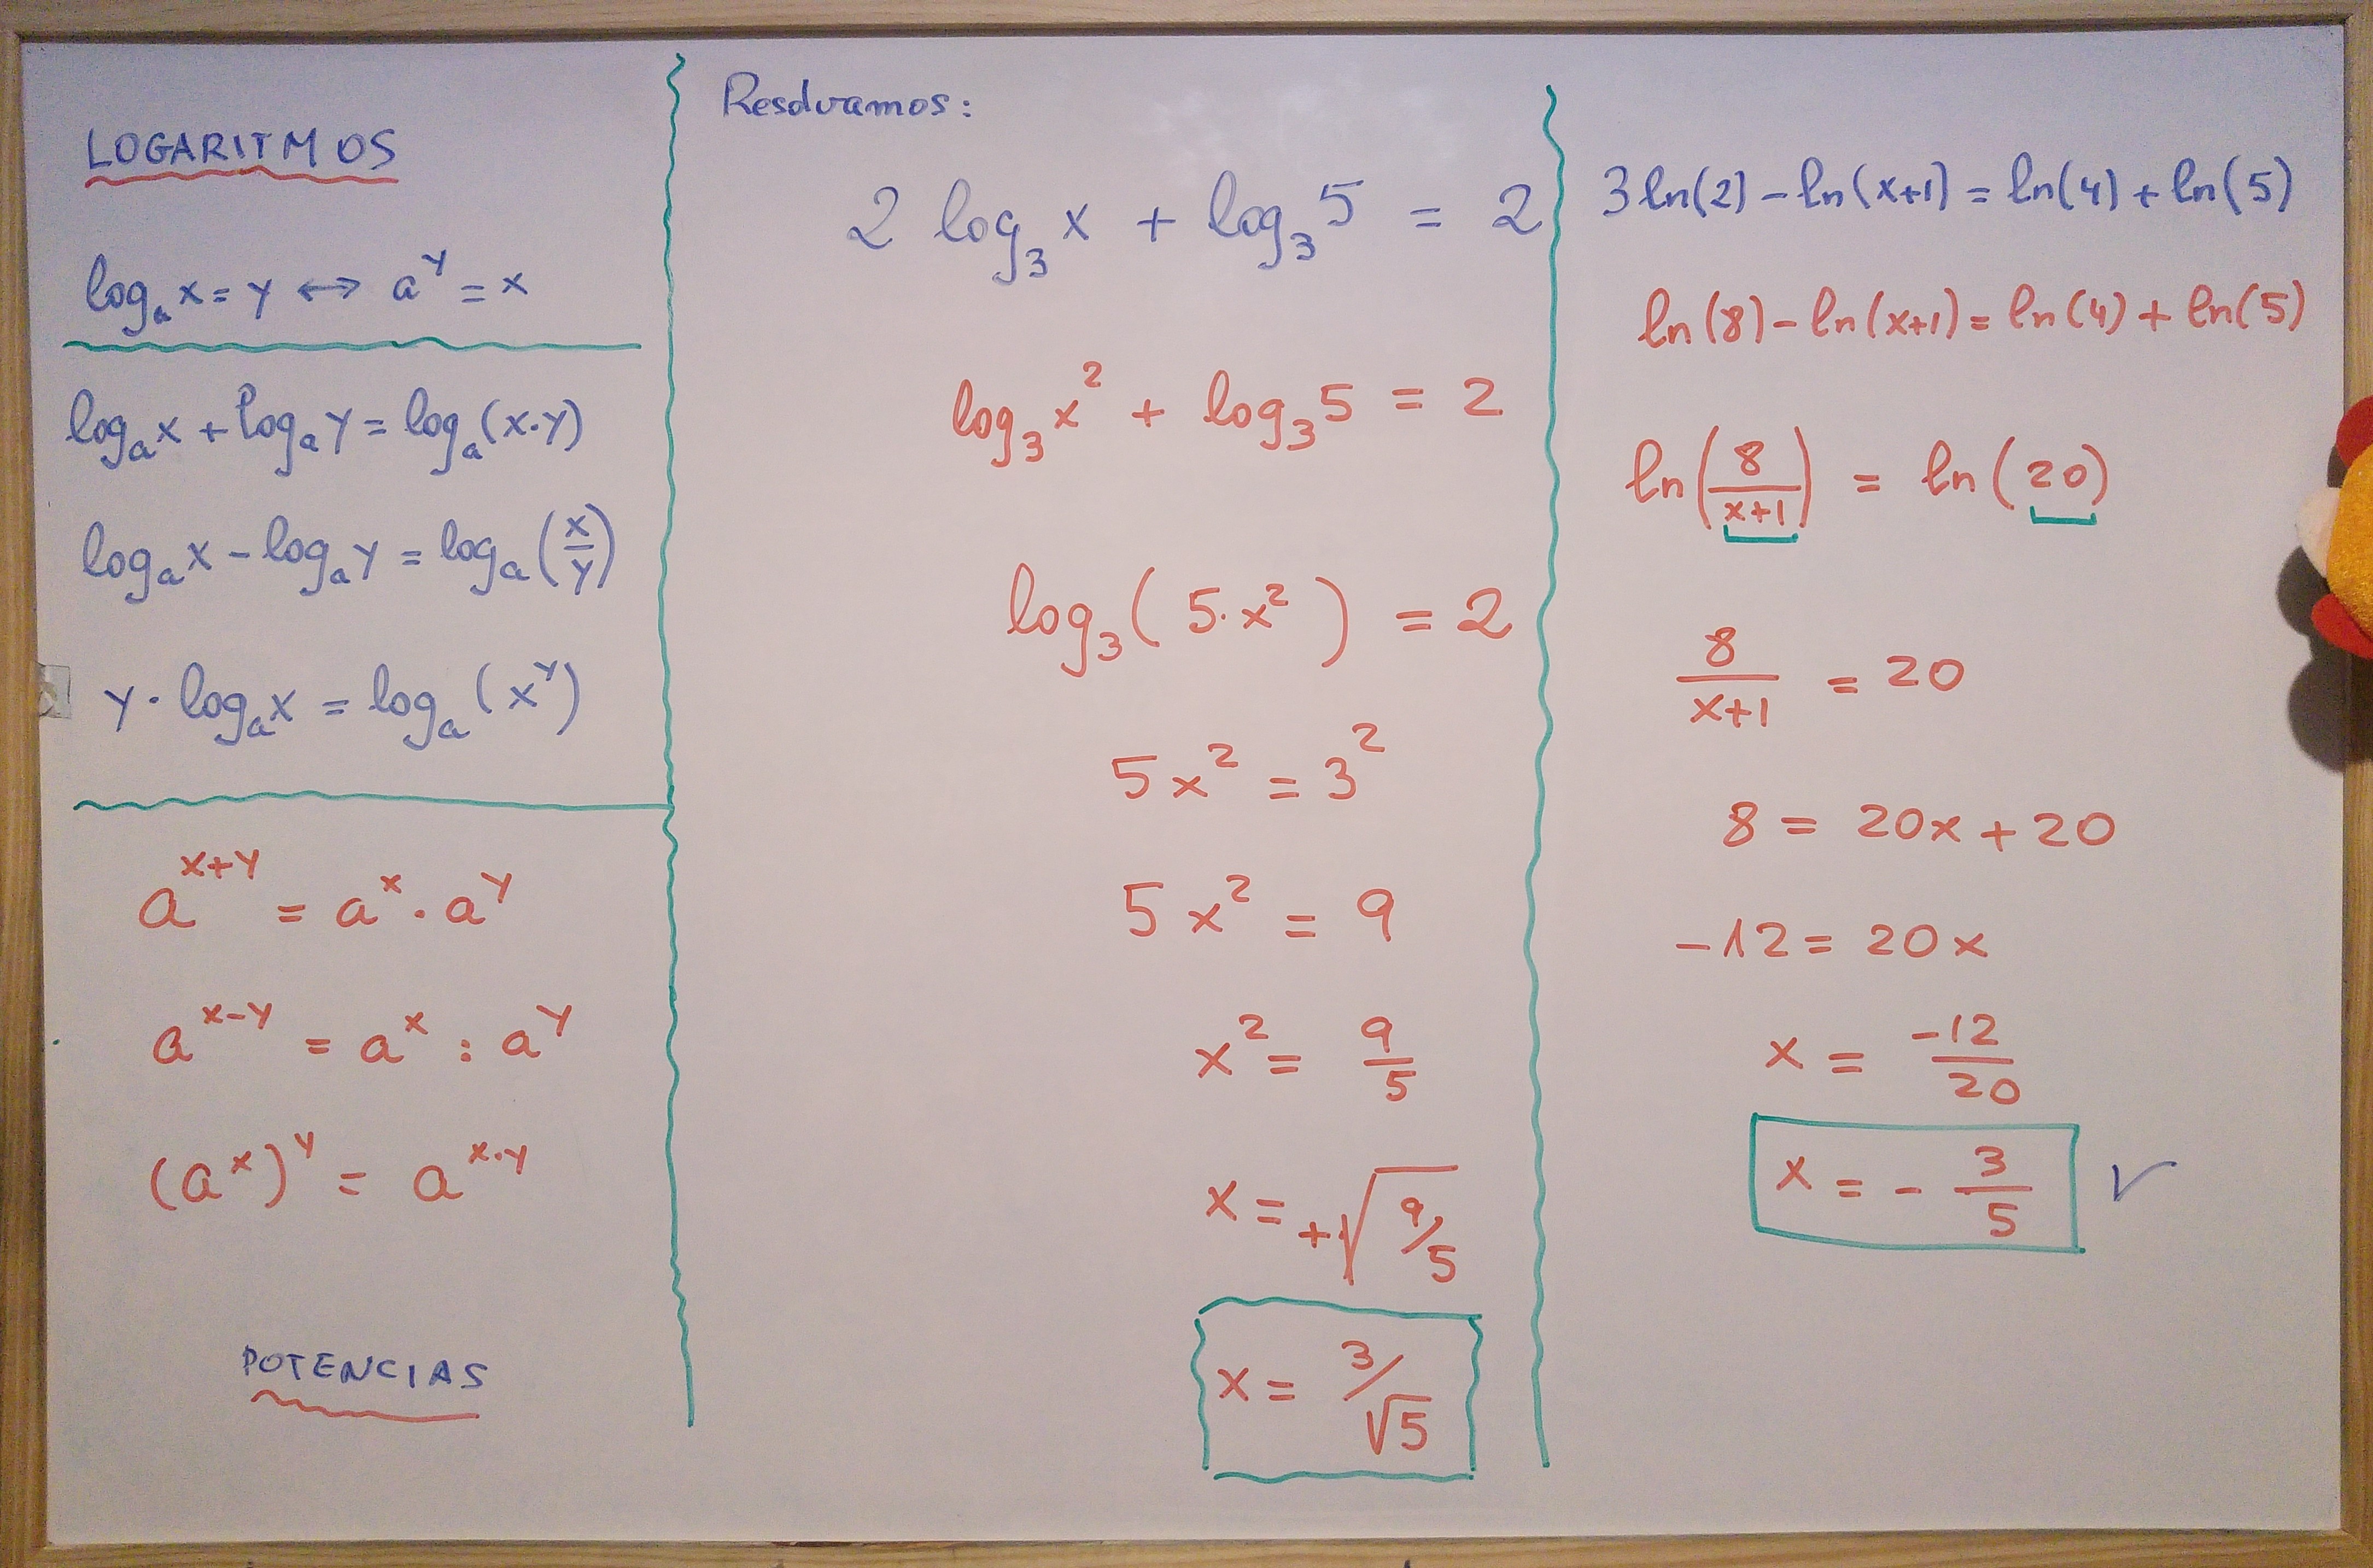 LOGARITMOS
logₐx = y ↔ a^y = x
logₐx + logₐy = logₐ(x·y)
logₐx - logₐy = logₐ(x/y)
y · logₐx = logₐ(x^y)
a^(x+y) = a^x · a^y
a^(x-y) = a^x : a^y
(a^x)^y = a^(x·y)
POTENCIAS
Resolvamos:
2 log₃x + log₃5 = 2
log₃x² + log₃5 = 2
log₃(5·x²) = 2
5x² = 3²
5x² = 9
x² = 9/5
x = +√(9/5)
x = 3/√5
3ln(2) - ln(x+1) = ln(4) + ln(5)
ln(8) - ln(x+1) = ln(4) + ln(5)
ln(8/(x+1)) = ln(20)
8/(x+1) = 20
8 = 20x + 20
-12 = 20x
x = -12/20
x = -3/5 ✓